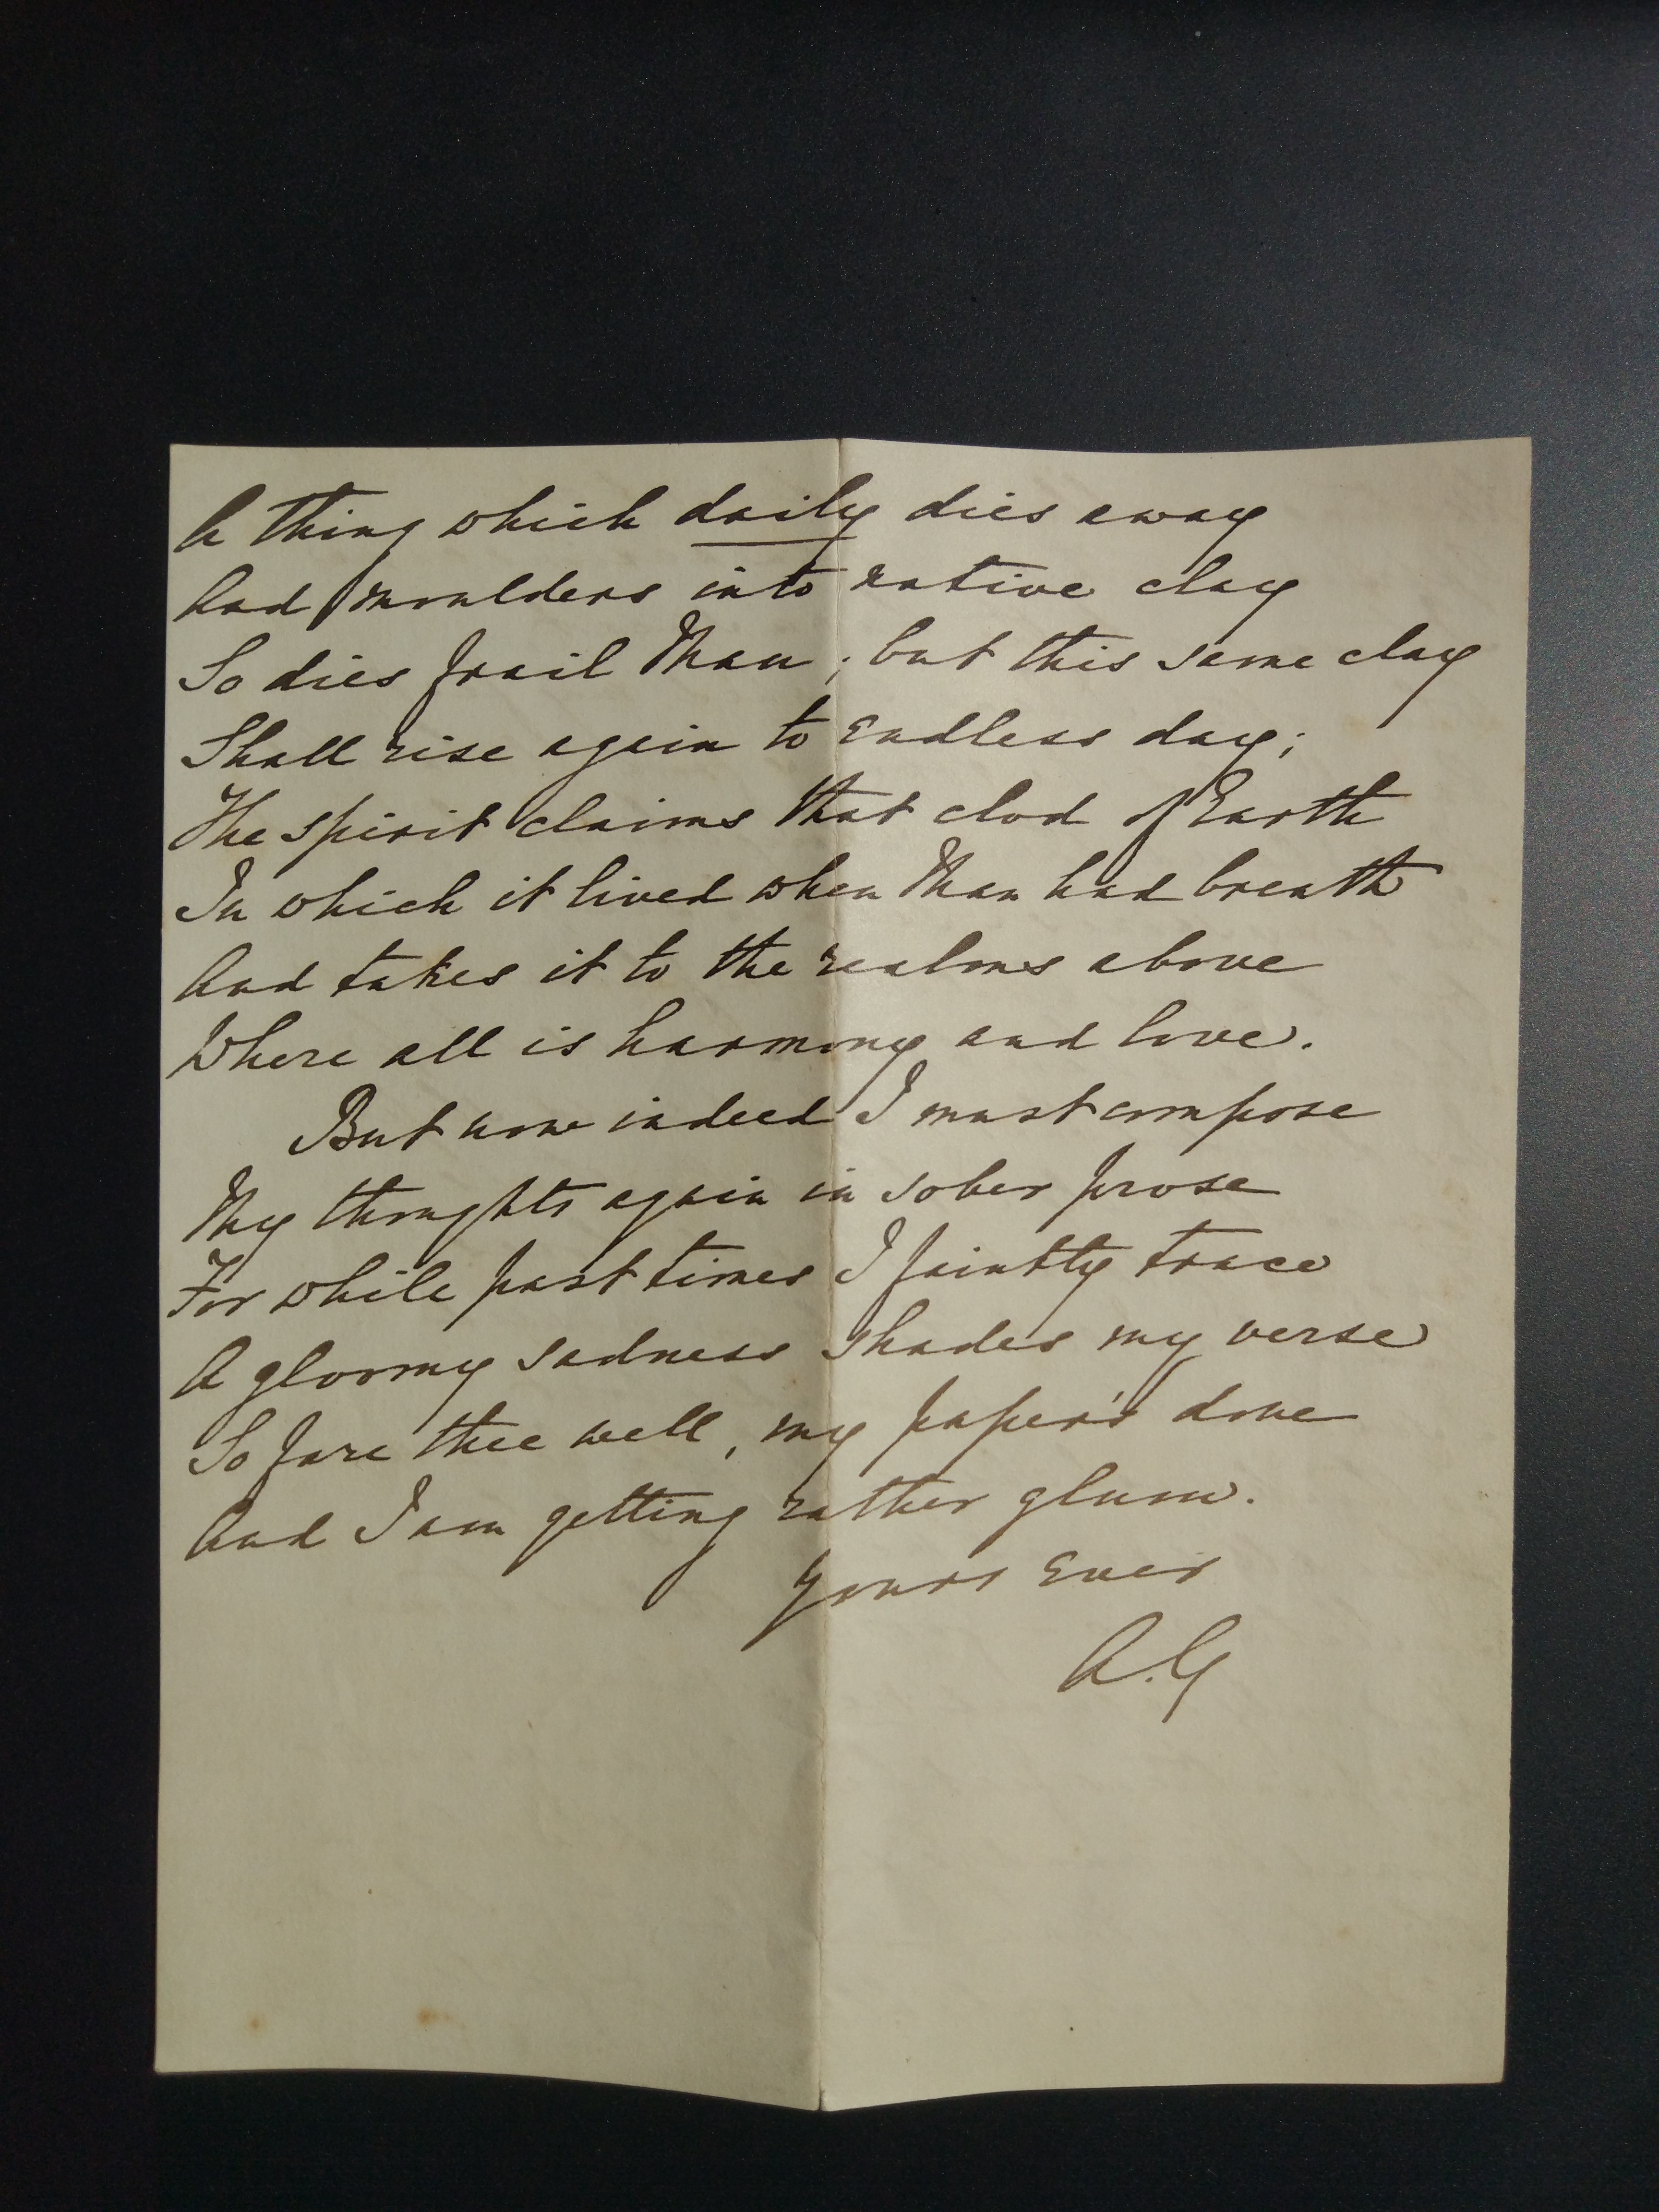 A thing which daily dies away
And moulders into native clay
So dies frail Man; but this same clay
Shall rise again to Endless day;
The spirit claims that clod of Earth
In which it lived when Man had breath
And takes it to the realms above
Where all is harmony and love.
But now indeed I must compose
My thoughts again in sober prose
For while past times I faintly trace
A gloomy sadness shades my verse
So fare thee well, my paper's done
And I am getting rather glum.
Yours Ever
A.G